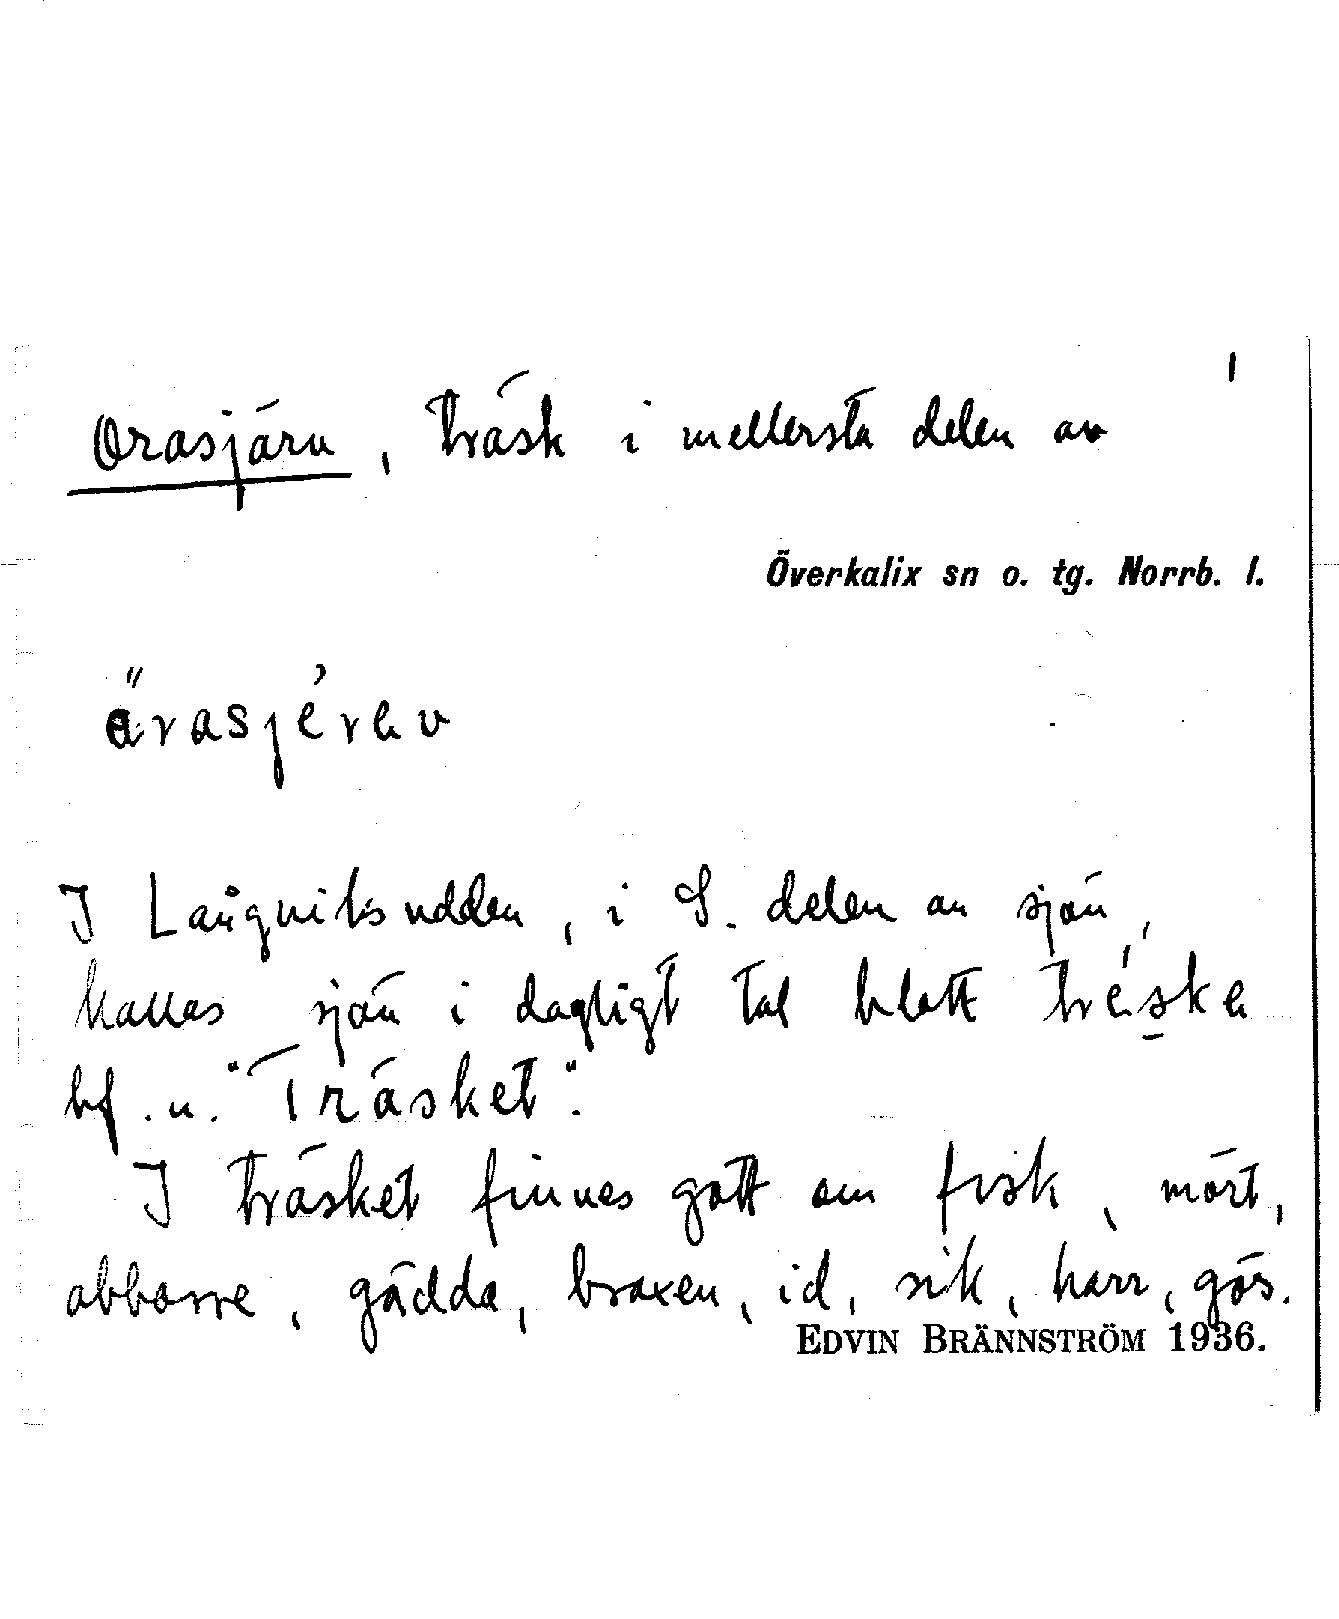 1
Orasjärv, träsk i mellersta delen av
Överkalix sn o. tg. Norrb. l.
I Långviksudden, i S. delen av sjön,
kallas sjön i dagligt tal blott
bf. n. "Träsket".
I träsket finnes gott om fisk, mört,
abborre, gädda, braxen, id, sik, harr, gös.
EDVIN BRÄNNSTRÖM 1936.